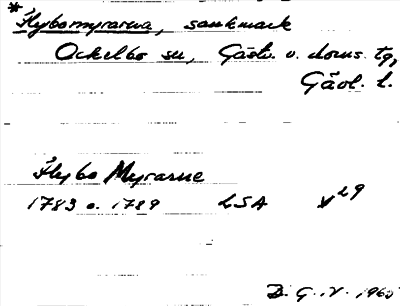 * Flybomyrarna, sankmark
Ockelbo sn, Gästr. v. doms. tg,
Gävl. l.
Flybo Myrarne
1783 o. 1789 LSA V29
D. G. V. 1965